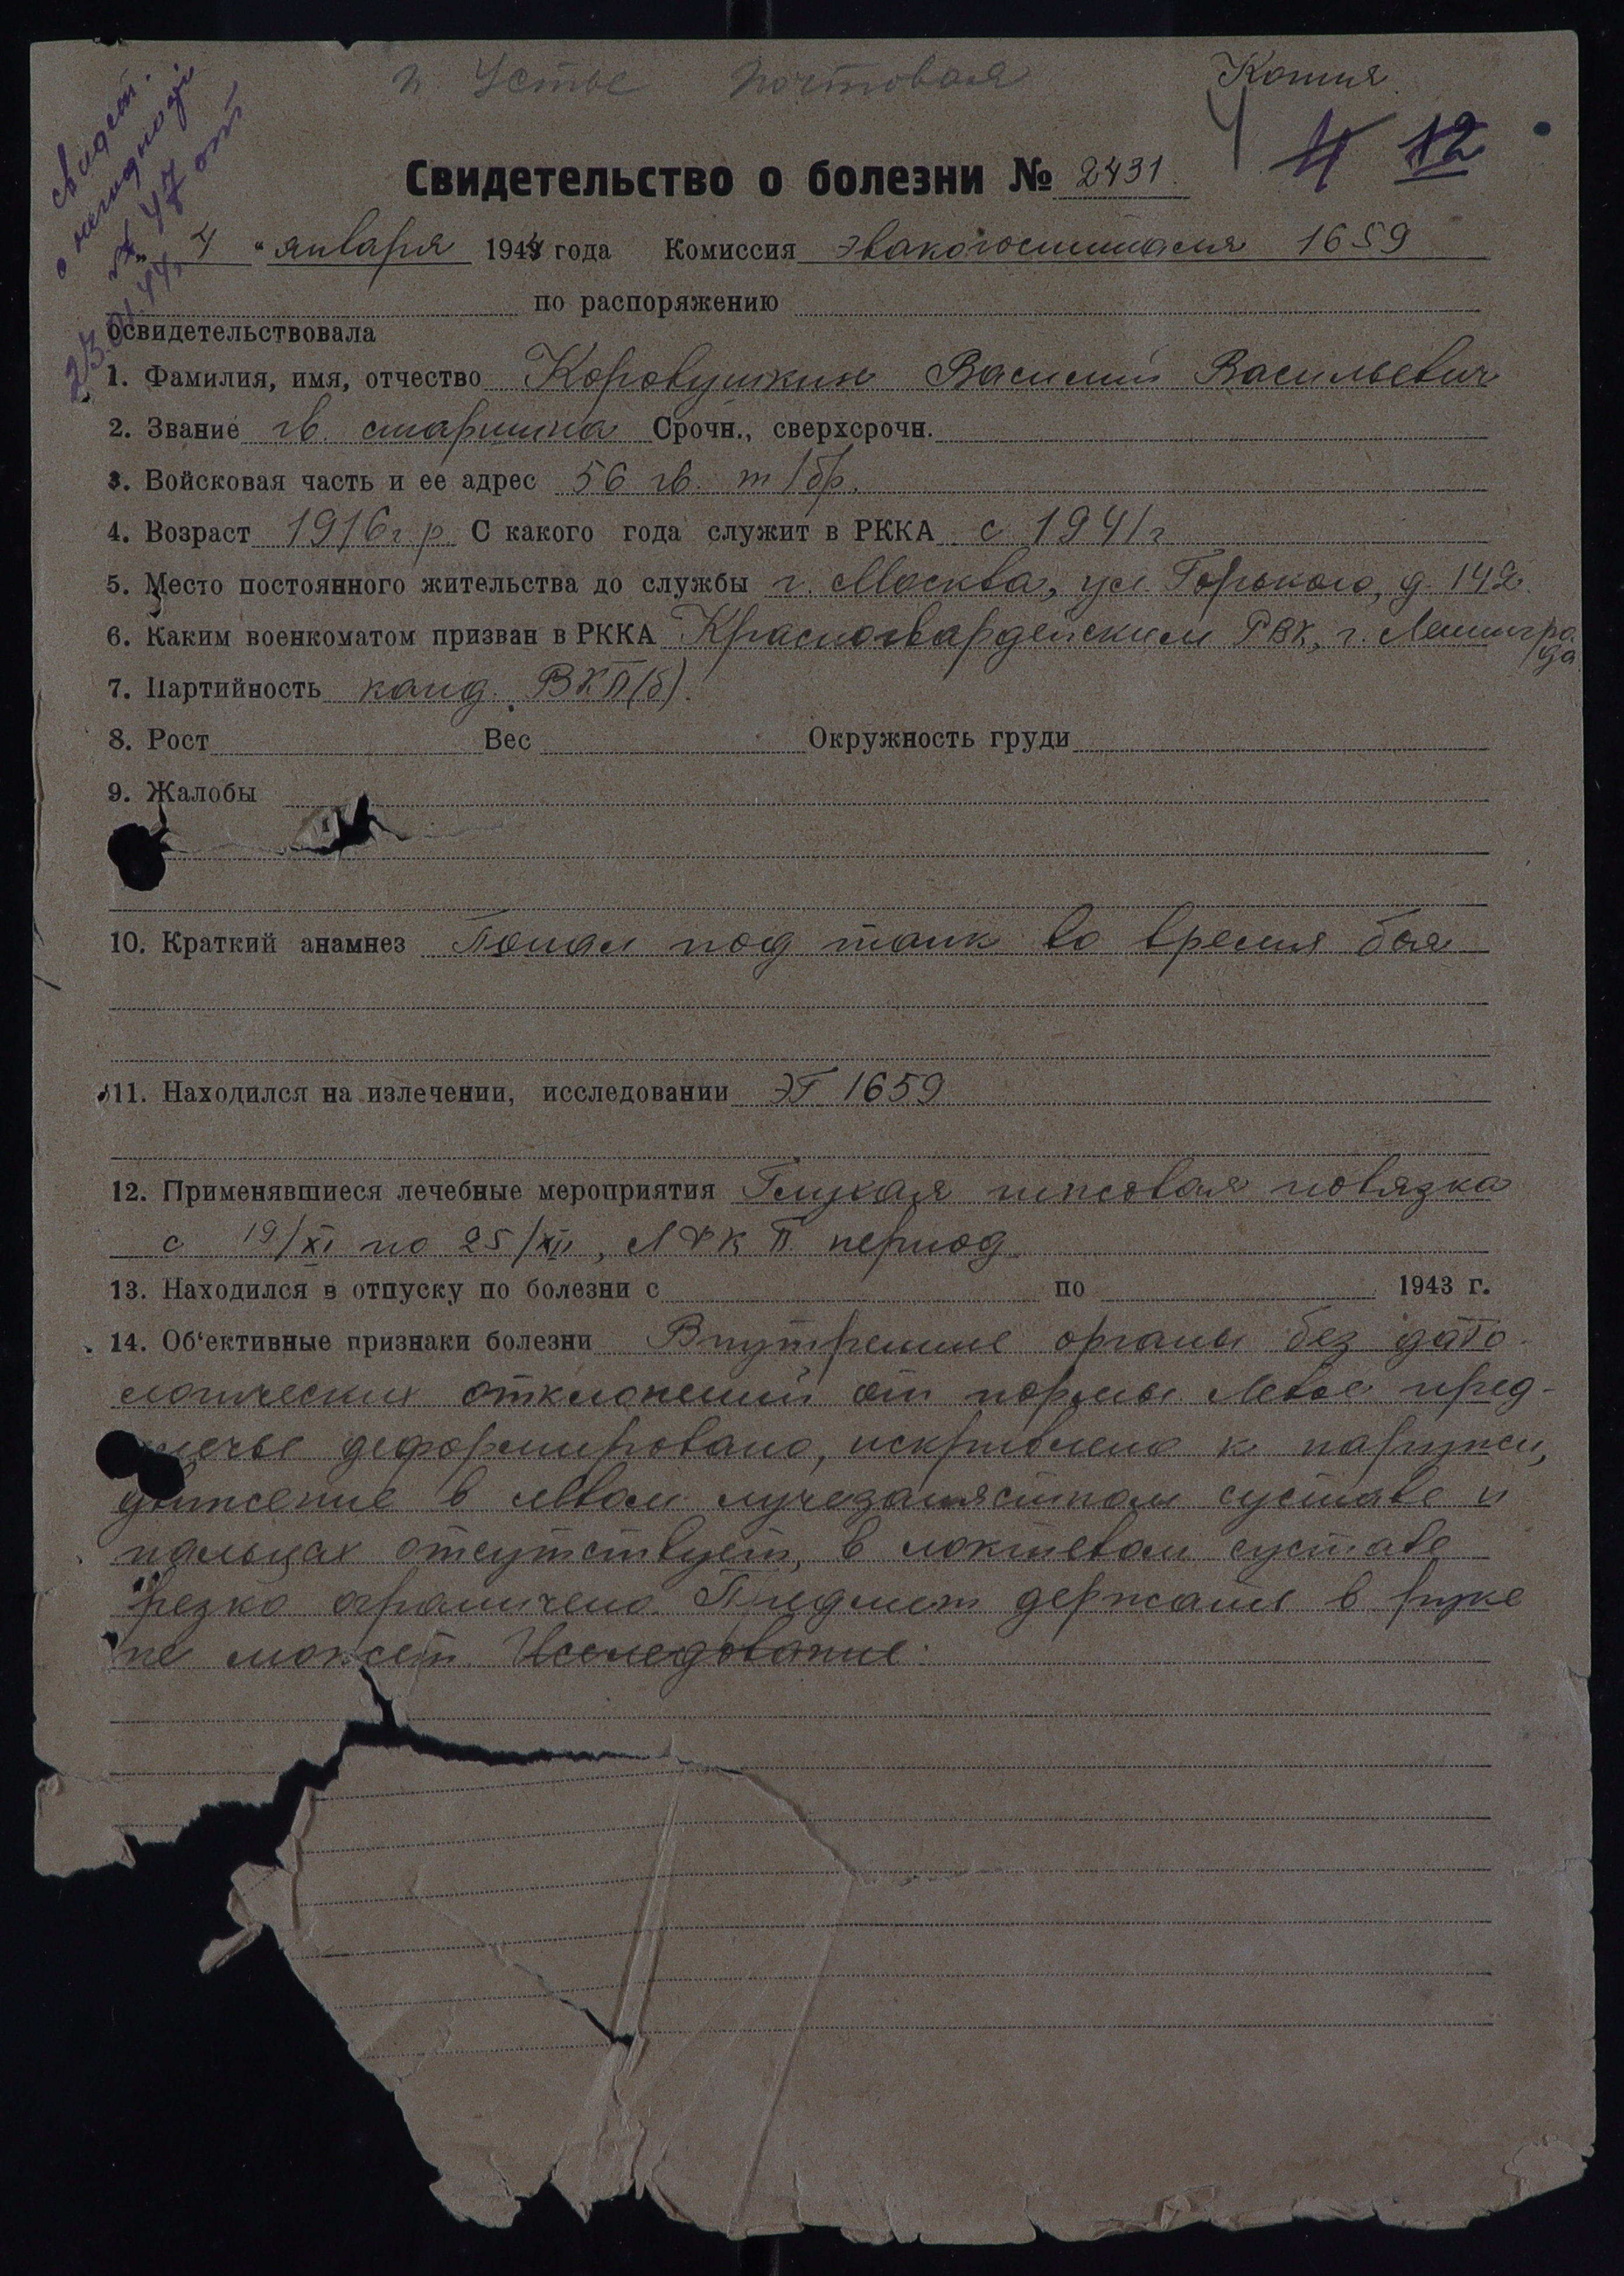 п Устье Почтовая
Копия
свидет.
о негодности
№ 47 от
23.01.44
4 12
Свидетельство о болезни № 2431
„ 4 “ января 1944 года Комиссия эвакогоспиталя 1659
по распоряжению
освидетельствовала
1. Фамилия, имя, отчество Коровушкин Василий Васильевич
2. Звание гв. старшина Срочн., сверхсрочн.
3. Войсковая часть и ее адрес 56 гв. т/бр.
4. Возраст 1916 г.р. С какого года служит в РККА с 1941 г
5. Место постоянного жительства до службы г. Москва, ул. Горького, д. 142
6. Каким военкоматом призван в РККА Красногвардейским РВК, г. Ленингра
да
7. Партийность канд. ВКП(б).
8. Рост Вес Окружность груди
9. Жалобы
10. Краткий анамнез Попал под танк во время боя
11. Находился на излечении, исследовании ЭГ 1659
12. Применявшиеся лечебные мероприятия Глухая гипсовая повязка
с 19/XI по 25/XII, ЛФК II период
13. Находился в отпуску по болезни с по 1943 г.
14. Об‘ективные признаки болезни Внутренние органы без пато-
логических отклонений от нормы. Левое пред-
плечье деформировано, искривлено к наружи,
движение в левом лучезапястном суставе и
пальцах отсутствует, в локтевом суставе
резко ограничено. Предмет держать в руке
не может. Исследование.